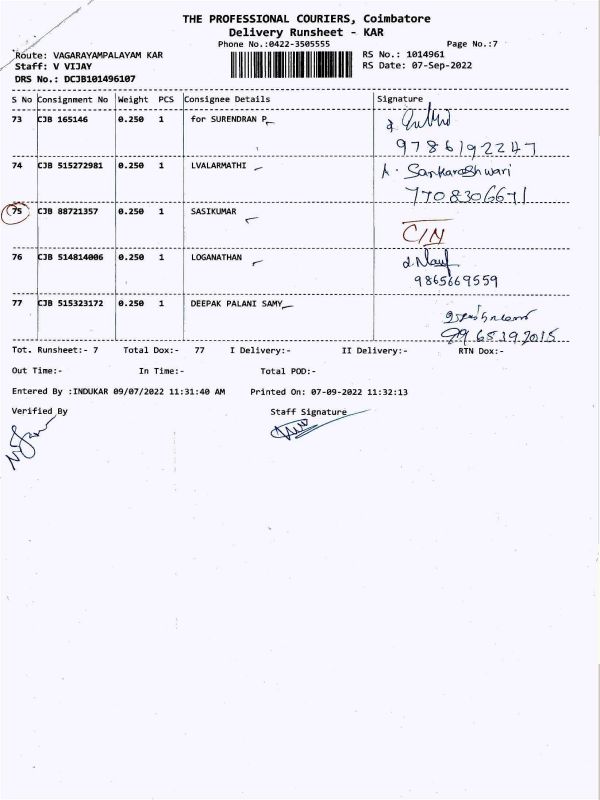 THE PROFESSIONAL COURIERS, Coimbatore
Delivery Runsheet - KAR
Phone No.:0422-3505555 Page No.:7
Route: VAGARAYAMPALAYAM KAR RS No.: 1014961
Staff: V VIJAY RS Date: 07-Sep-2022
DRS No.: DCJB101496107
S No Consignment No Weight PCS Consignee Details Signature
73 CJB 165146 0.250 1 for SURENDRAN P
9786192247
74 CJB 515272981 0.250 1 LVALARMATHI A. Sankarashwari
7708306671
75 CJB 88721357 0.250 1 SASIKUMAR
C/N
76 CJB 514814006 0.250 1 LOGANATHAN
9865669559
77 CJB 515323172 0.250 1 DEEPAK PALANI SAMY
Tot. Runsheet:- 7 Total Dox:- 77 I Delivery:- II Delivery:- RTN Dox:-
Out Time:- In Time:- Total POD:-
Entered By :INDUKAR 09/07/2022 11:31:40 AM Printed On: 07-09-2022 11:32:13
Verified By Staff Signature